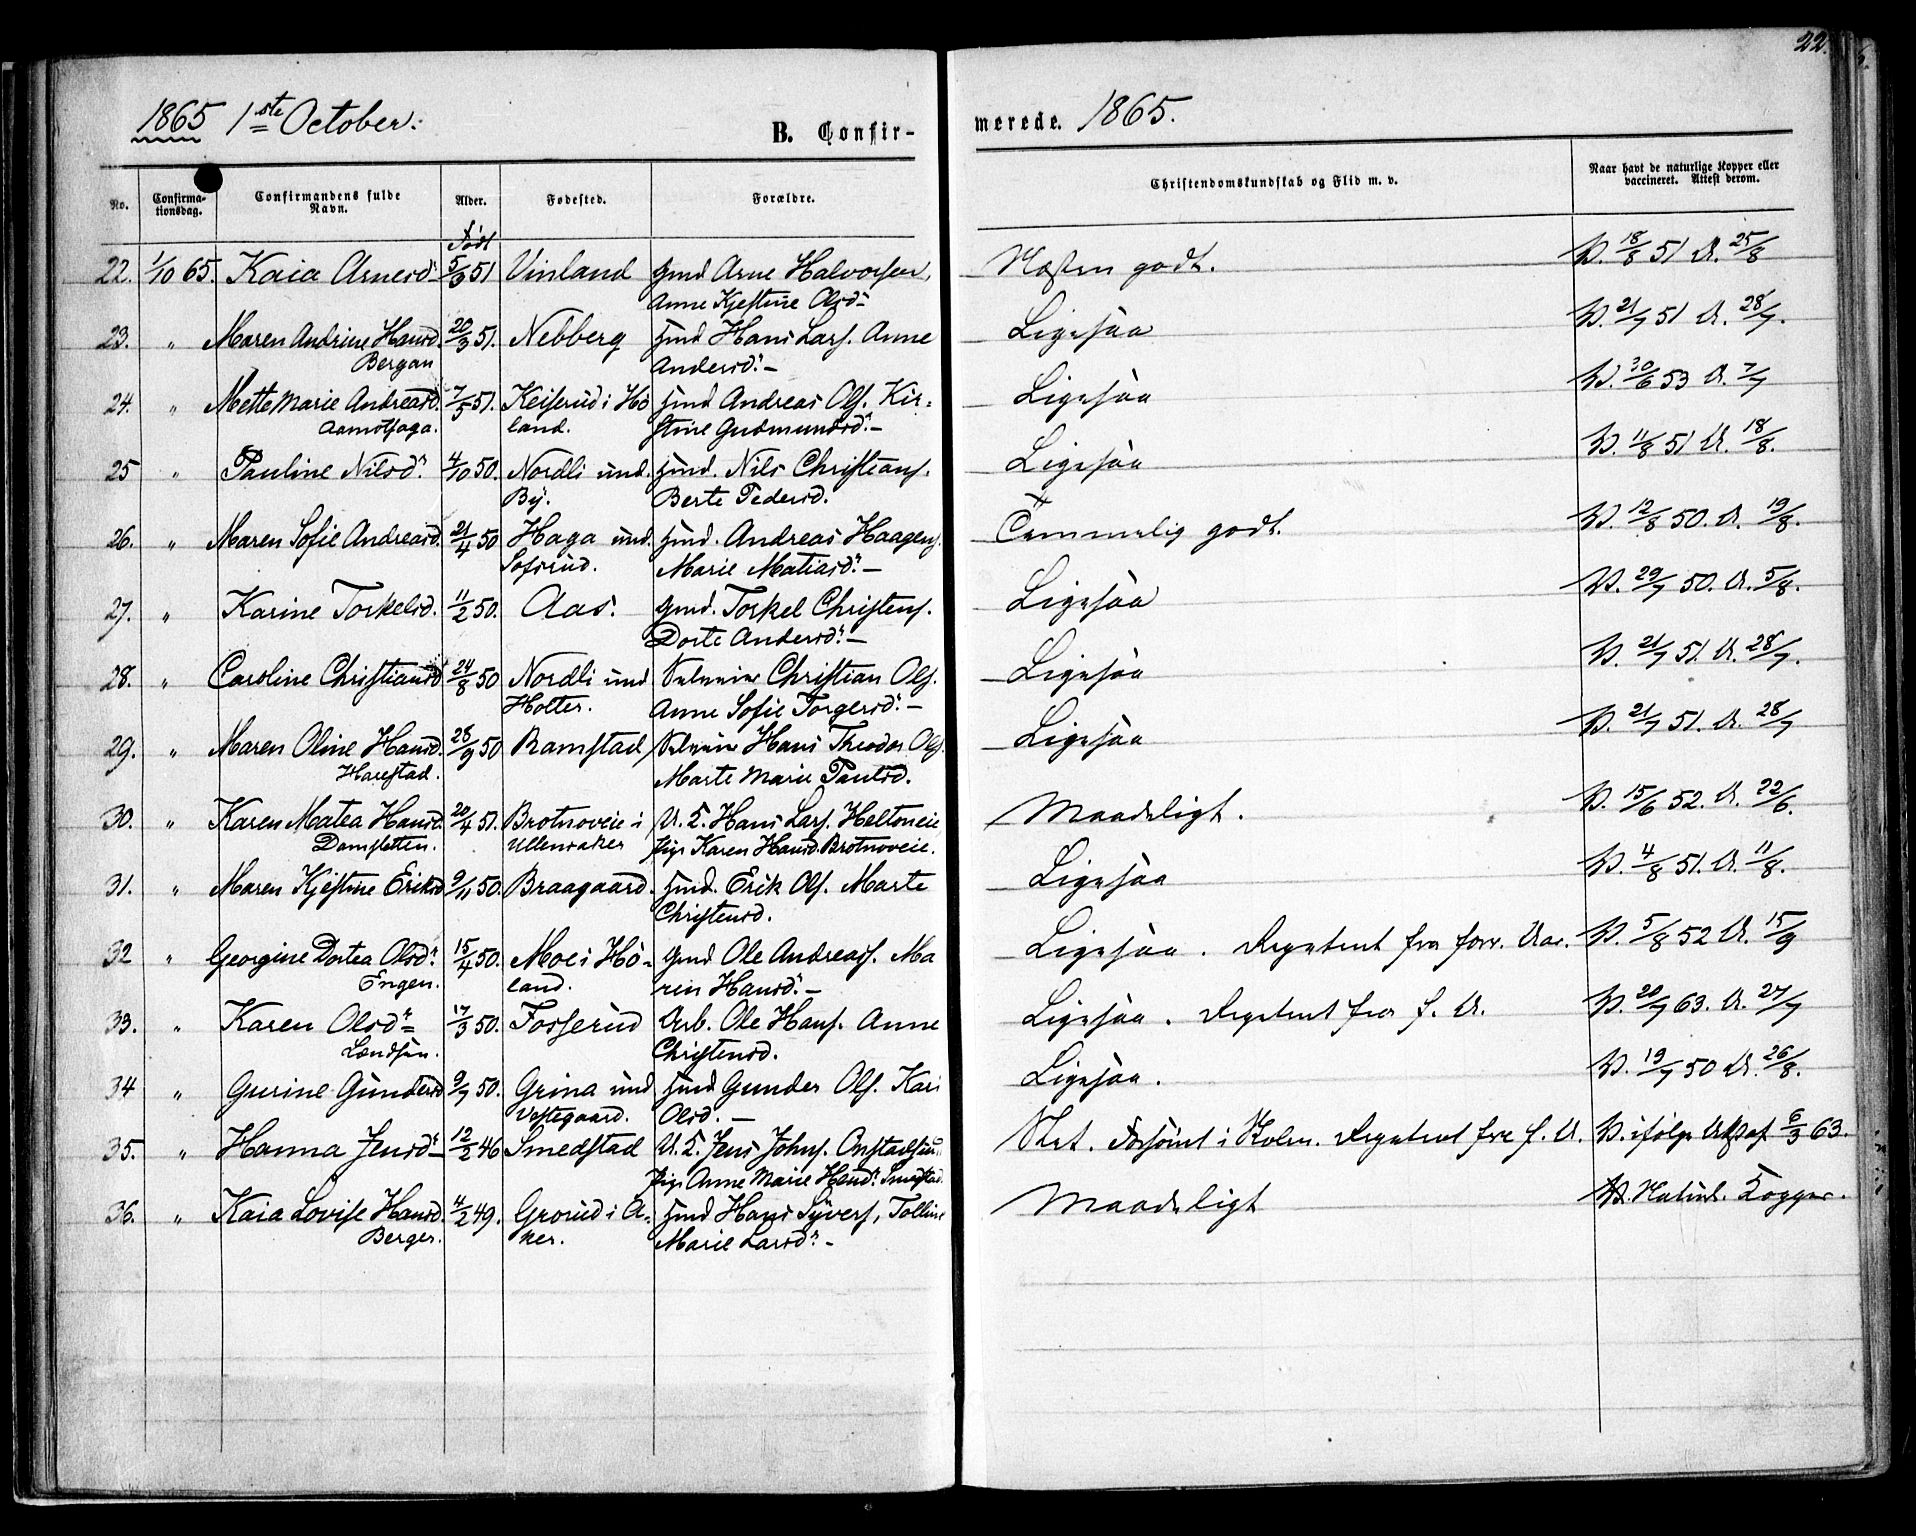 22.
1865 1ste October.
B. Confir-
merede. 1865.
No.
Confirma-
tionsdag.
Confirmandens fulde
Navn.
Alder.
Fødested.
Forældre.
Christendomskundskab og Flid m. v.
Naar havt de naturlige Kopper eller
vaccineret. Attest derom.
Født
22. 1/10 65. Kaia Arnesd. 5/3 51 Vinland Gmd Arne Halvorsen, Næsten godt. V. 18/8 51 A. 25/8
Anne Kjestine Olsd.
23. " Maren Andrine Hansd. 20/3 51. Nebberg Hmd Hans Lars. Anne Ligesaa V. 21/7 51 A. 28/7.
Bergan Andersd. -
24. " Mette Marie Andreasd. 7/5 51. Keiserud i Hö- Hmd Andreas Ols. Kir- Ligesaa V. 30/6 53 A. 7/7
land. stine Gudmundsd. -
25 " Pauline Nilsd. 4/10 50. Nordli und. Hmd. Nils Christians. Ligesaa V. 11/8 51 A. 18/8.
By. Berte Pedersd.
26. " Maren Sofie Andreasd. 21/4 50 Haga und. Hmd. Andreas Haagens. Temmelig godt. V. 12/8 50. A. 19/8.
Sofsrud. Marie Matiasd. -
27. " Karine Torkelsd. 11/2 50. Aas. Gmd. Torkel Christens. Ligesaa V. 29/7 50. A. 5/8.
Dorte Andersd. -
28. " Caroline Christiansd 24/8 50 Nordli und Selveier Christian Ols. Ligesaa V. 21/7 51. A. 28/7.
Holter. Anne Sofie Torgersd. -
29. " Maren Oline Hansd. 28/9 50 Ramstad Selveier Hans Theodor Ols. Ligesaa V. 21/7 51. A. 28/7
Harestad. Marte Marie Paulsd.
30. " Karen Matea Hansd. 20/4 51. Brotnoveie i U. E. Hans Lars. Heltoneie Maadeligt. V. 15/6 52. A. 22/6.
Damsletten. Ullensaker Pige Karen Hansd. Brotnoveie.
31. " Maren Kjestine Eriksd 9/11 50. Braagaard. Hmd. Erik Ols. Marte Ligesaa V. 4/8 51. A. 11/8.
Christensd.
32 " Georgine Dortea Olsd. 15/4 50. Moe i Hö- Gmd Ole Andreas. Ma Ligesaa. Repetent fra forr. Aar. V. 5/8 52 A. 15/9
Engen. land. rin Hansd. -
33. " Karen Olsd. 17/3 50. Fosserud Arb. Ole Hans. Anne Ligesaa. Repetent fra f. A. V. 20/7 63. A. 27/7
Christensd.
34 " Gurine Gundersd 9/7 50. Grina und Hmd Gunder Ols. Kari Ligesaa. V. 19/7 50 A. 26/8.
Vestegaard. Olsd. -
35. " Hanna Jensd. - 12/2 46 Smedstad U. E. Jens Johns. Slet. Forsömt i Skolen. Repetent fra f. A. V. ifölge Att. af 6/3 63.
Pige Anne Marie Hansd. Smedstad.
36. " Kaia Lovise Hansd 4/2 49. Grorud i A- Hmd Hans Syvers, Maadeligt V. Naturl. Kopper.
Berger. ker. Marie Larsd. -